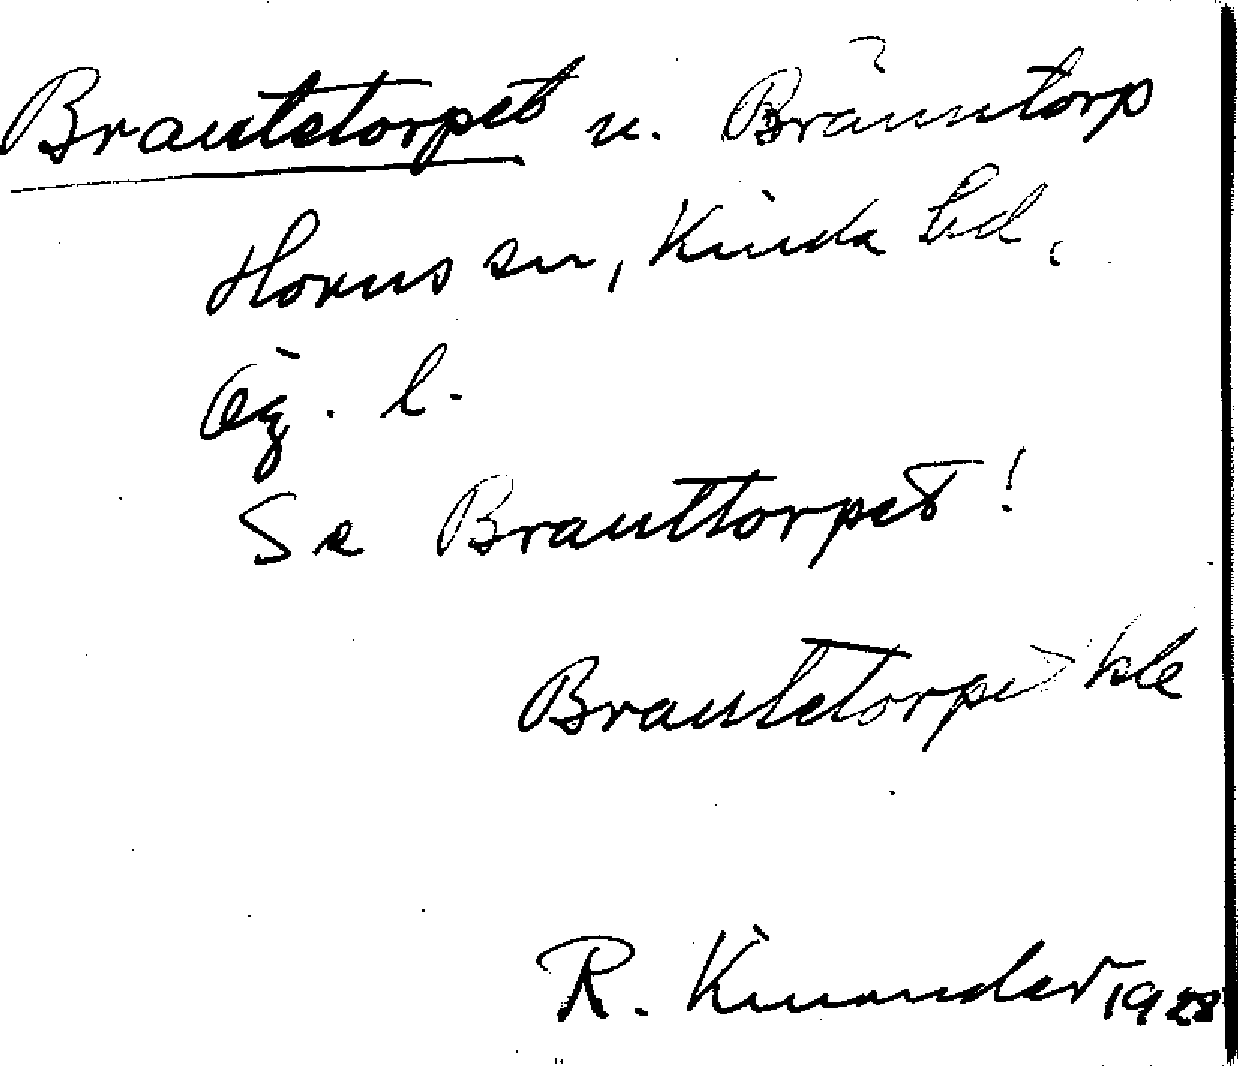 Brantetorpet u. Bränntorp
Horns sn, Kinda hd,
Ög. l.
Se Branttorpet!
Brantetorpet kle
R. Kinander 1928